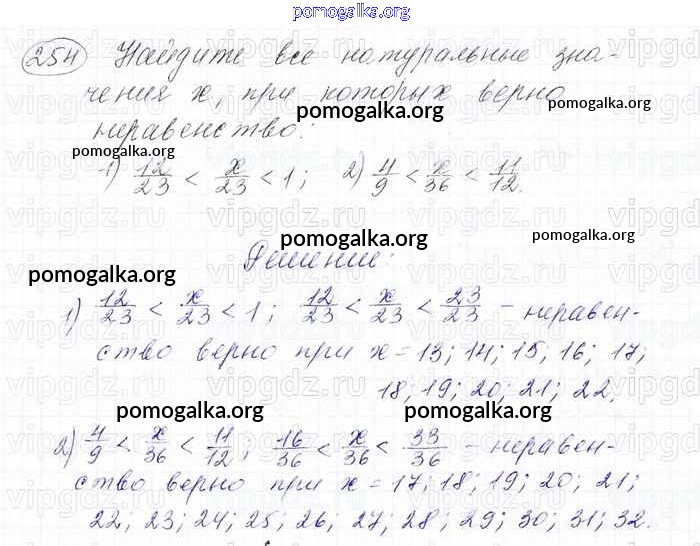 pomogalka.org
254 Найдите все натуральные зна-
чения x, при которых верно
pomogalka.org
неравенство:
pomogalka.org
1) 12/23 < x/23 < 1; 2) 4/9 < x/36 < 11/12.
pomogalka.org
pomogalka.org
Решение:
pomogalka.org
1) 12/23 < x/23 < 1; 12/23 < x/23 < 23/23 – неравен-
ство верно при x = 13; 14; 15; 16; 17;
18; 19; 20; 21; 22.
pomogalka.org
pomogalka.org
2) 4/9 < x/36 < 11/12; 16/36 < x/36 < 33/36 – неравен-
ство верно при x = 17; 18; 19; 20; 21;
22; 23; 24; 25; 26; 27; 28; 29; 30; 31; 32.